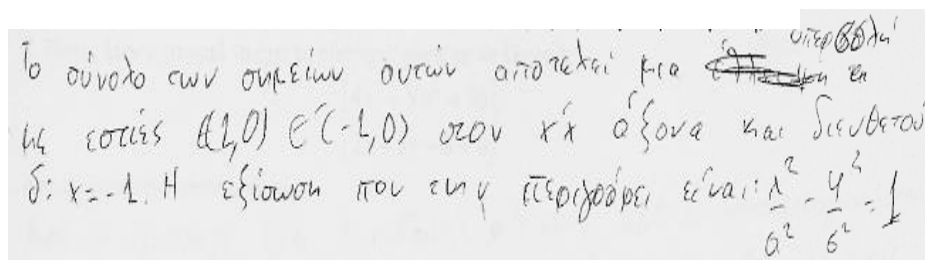 υπερβολή
Το σύνολο των σημείων αυτών αποτελεί μια
με εστίες E(1,0) E'(-1,0) στον x'x άξονα και διευθετού
δ: x=-1. Η εξίσωση που την περιγράφει είναι: x²/α² - y²/β² = 1